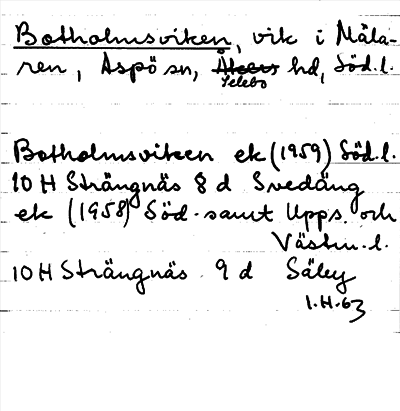 Botholmsviken, vik i Mäla-
ren, Aspö sn, Åkers hd, Söd.l.
Selebo
Botholmsviken ek (1959) Söd.l.
10 H Strängnäs 8 d Svedäng
ek (1958) Söd. samt Upps. och
Västm.l.
10 H Strängnäs 9 d Säby
1.H.63